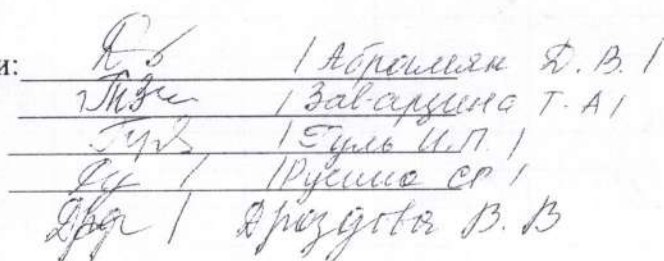 и: / Абрамян Д. В. /
/ Заварзина Т. А /
/ Гуль И.П. /
/ /
Дрд / Дроздова В. В